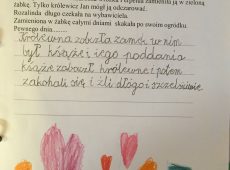 żabkę. Tylko królewicz Jan mógł ją odczarować.
Rozalinda długo czekała na wybawiciela.
Zamieniona w żabkę całymi dniami skakała po swoim ogródku.
Pewnego dnia
królewna zobaczyła zamek w nim
był książe i jego poddani
książe zobaczył królewnę i potem
zakochali się i żli długo i szczęśliwie